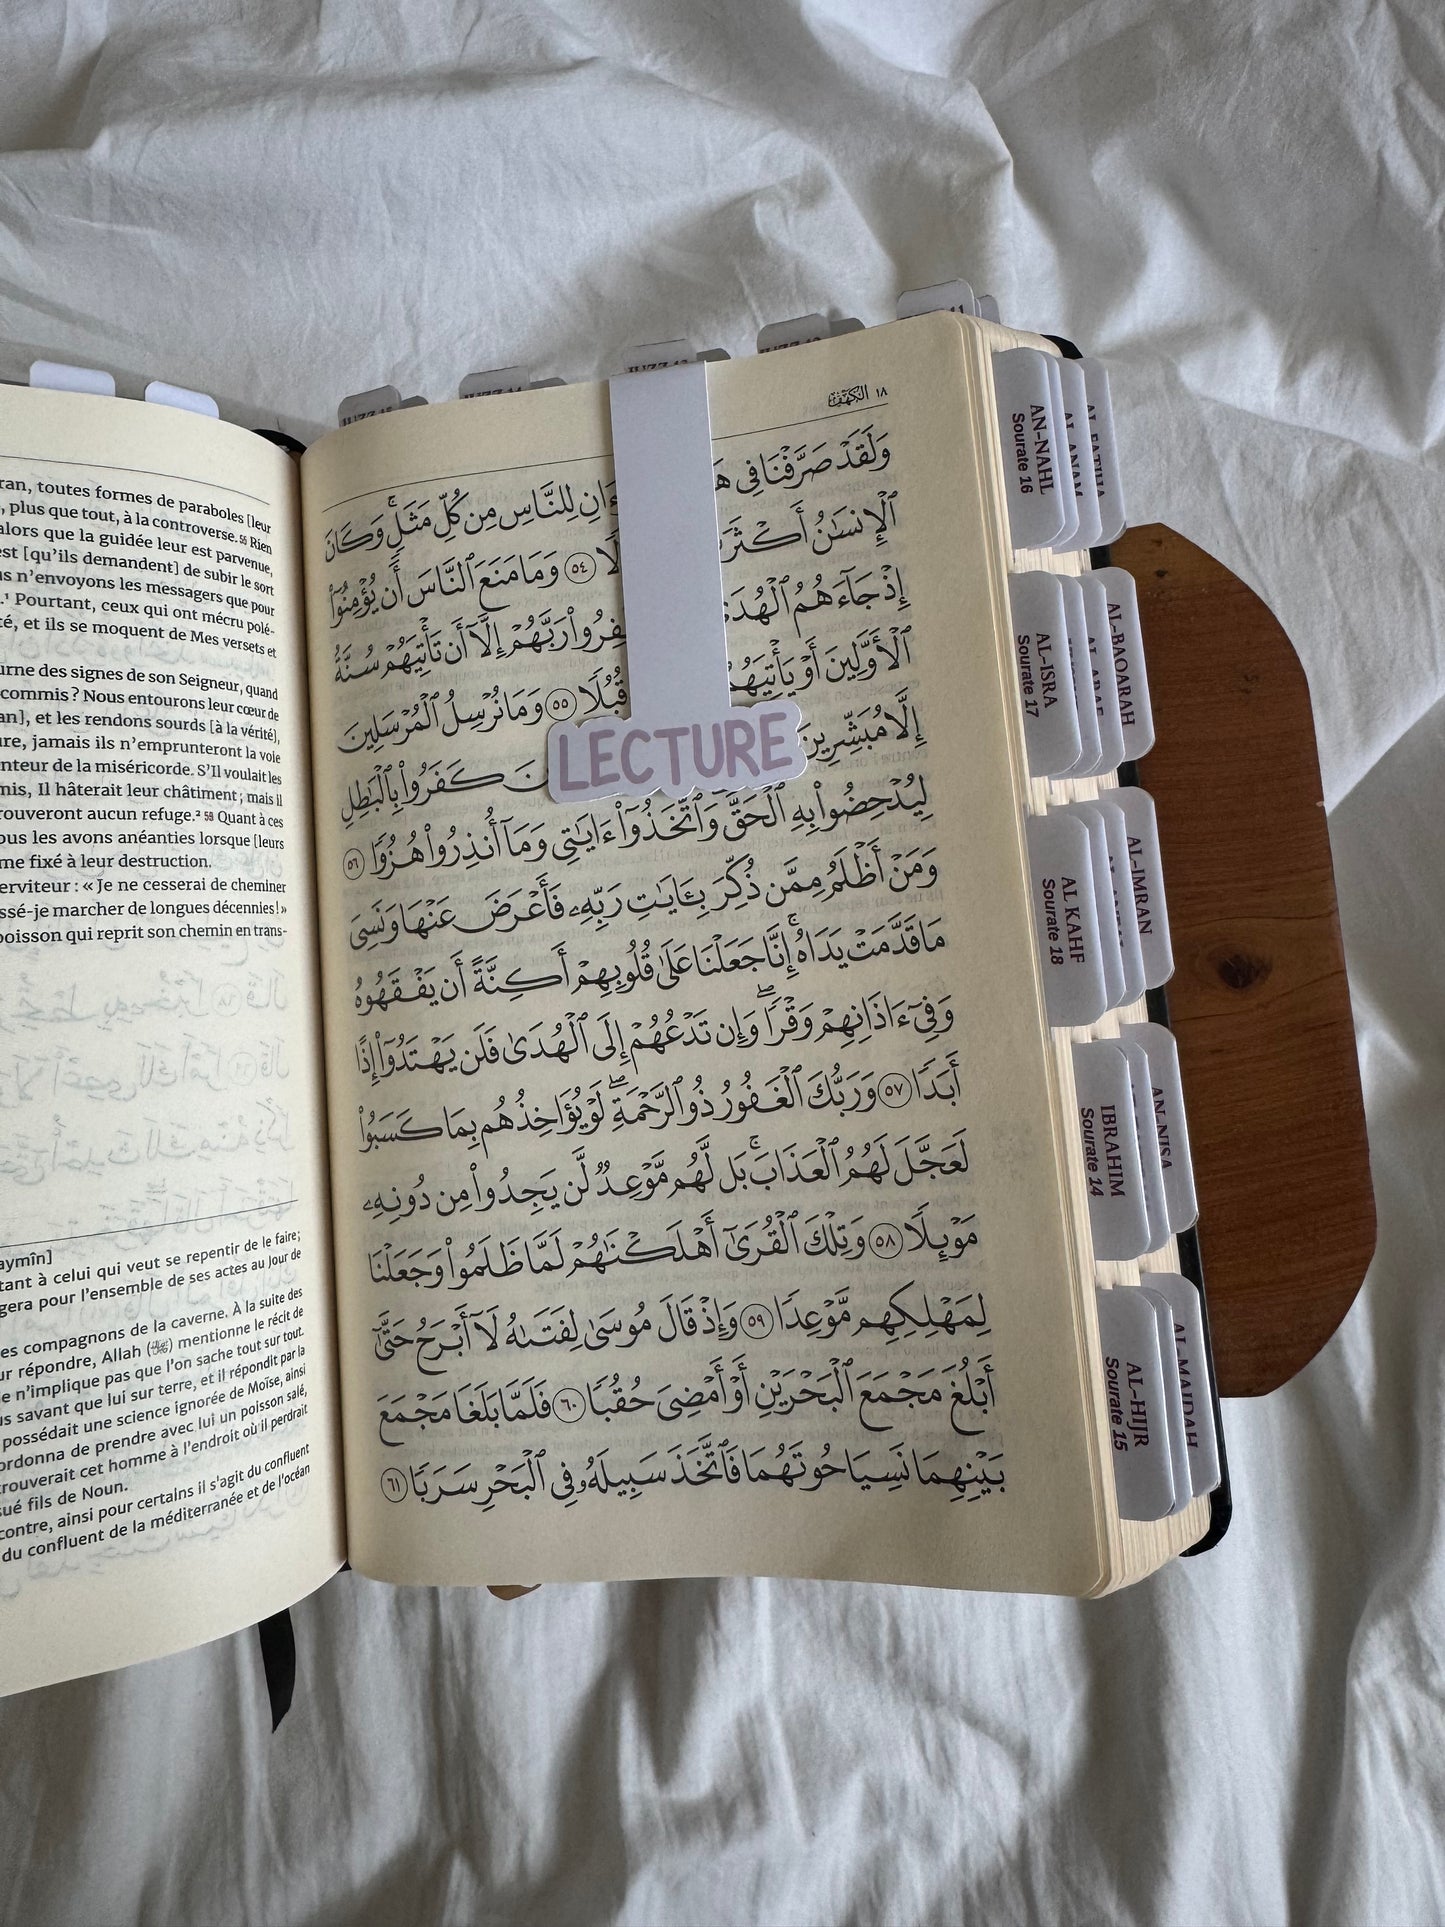 ran, toutes formes de paraboles [leur
, plus que tout, à la controverse. 55 Rien
alors que la guidée leur est parvenue,
est [qu’ils demandent] de subir le sort
us n’envoyons les messagers que pour
.¹ Pourtant, ceux qui ont mécru polé-
té, et ils se moquent de Mes versets et
urne des signes de son Seigneur, quand
commis ? Nous entourons leur cœur de
an], et les rendons sourds [à la vérité),
ure, jamais ils n’emprunteront la voie
nteur de la miséricorde. S’Il voulait les
mis, Il hâterait leur châtiment ; mais il
rouveront aucun refuge.² 59 Quant à ces
ous les avons anéanties lorsque [leurs
me fixé à leur destruction.
erviteur : « Je ne cesserai de cheminer
ssé-je marcher de longues décennies ! »
poisson qui reprit son chemin en trans-
aymîn]
tant à celui qui veut se repentir de le faire ;
gera pour l’ensemble de ses actes au Jour de
es compagnons de la caverne. À la suite des
ur répondre, Allah (ﷻ) mentionne le récit de
e n’implique pas que l’on sache tout sur tout.
us savant que lui sur terre, et il répondit par la
possédait une science ignorée de Moïse, ainsi
ordonna de prendre avec lui un poisson salé,
trouverait cet homme à l’endroit où il perdrait
sué fils de Noun.
contre, ainsi pour certains il s'agit du confluent
du confluent de la méditerranée et de l'océan
١٨ الكهف
وَلَقَدۡ صَرَّفۡنَا فِي هَ ءَانِ لِلنَّاسِ مِن كُلِّ مَثَلٖۚ وَكَانَ
ٱلۡإِنسَٰنُ أَكۡثَرَ لٗا ٥٤ وَمَا مَنَعَ ٱلنَّاسَ أَن يُؤۡمِنُوٓاْ
إِذۡ جَآءَهُمُ ٱلۡهُدَىٰ فِرُواْ رَبَّهُمۡ إِلَّآ أَن تَأۡتِيَهُمۡ سُنَّةُ
ٱلۡأَوَّلِينَ أَوۡ يَأۡتِيَهُمُ قُبُلٗا ٥٥ وَمَا نُرۡسِلُ ٱلۡمُرۡسَلِينَ
إِلَّا مُبَشِّرِينَ نَ كَفَرُواْ بِٱلۡبَٰطِلِ
لِيُدۡحِضُواْ بِهِ ٱلۡحَقَّۖ وَٱتَّخَذُوٓاْ ءَايَٰتِي وَمَآ أُنذِرُواْ هُزُوٗا ٥٦
وَمَنۡ أَظۡلَمُ مِمَّن ذُكِّرَ بِـَٔايَٰتِ رَبِّهِۦ فَأَعۡرَضَ عَنۡهَا وَنَسِيَ
مَا قَدَّمَتۡ يَدَاهُۚ إِنَّا جَعَلۡنَا عَلَىٰ قُلُوبِهِمۡ أَكِنَّةً أَن يَفۡقَهُوهُ
وَفِيٓ ءَاذَانِهِمۡ وَقۡرٗاۖ وَإِن تَدۡعُهُمۡ إِلَى ٱلۡهُدَىٰ فَلَن يَهۡتَدُوٓاْ إِذًا
أَبَدٗا ٥٧ وَرَبُّكَ ٱلۡغَفُورُ ذُو ٱلرَّحۡمَةِۖ لَوۡ يُؤَاخِذُهُم بِمَا كَسَبُواْ
لَعَجَّلَ لَهُمُ ٱلۡعَذَابَۚ بَل لَّهُم مَّوۡعِدٞ لَّن يَجِدُواْ مِن دُونِهِۦ
مَوۡئِلٗا ٥٨ وَتِلۡكَ ٱلۡقُرَىٰٓ أَهۡلَكۡنَٰهُمۡ لَمَّا ظَلَمُواْ وَجَعَلۡنَا
لِمَهۡلِكِهِم مَّوۡعِدٗا ٥٩ وَإِذۡ قَالَ مُوسَىٰ لِفَتَىٰهُ لَآ أَبۡرَحُ حَتَّىٰٓ
أَبۡلُغَ مَجۡمَعَ ٱلۡبَحۡرَيۡنِ أَوۡ أَمۡضِيَ حُقُبٗا ٦٠ فَلَمَّا بَلَغَا مَجۡمَعَ
بَيۡنِهِمَا نَسِيَا حُوتَهُمَا فَٱتَّخَذَ سَبِيلَهُۥ فِي ٱلۡبَحۡرِ سَرَبٗا ٦١
LECTURE
AN-NAHL
Sourate 16
AL-ANAM
AL-FATIHA
AL-ISRA
Sourate 17
AL-ARAF
AL-BAQARAH
AL KAHF
Sourate 18
AL-IMRAN
IBRAHIM
Sourate 14
AN-NISA
AL-HIJR
Sourate 15
AL-MAIDAH